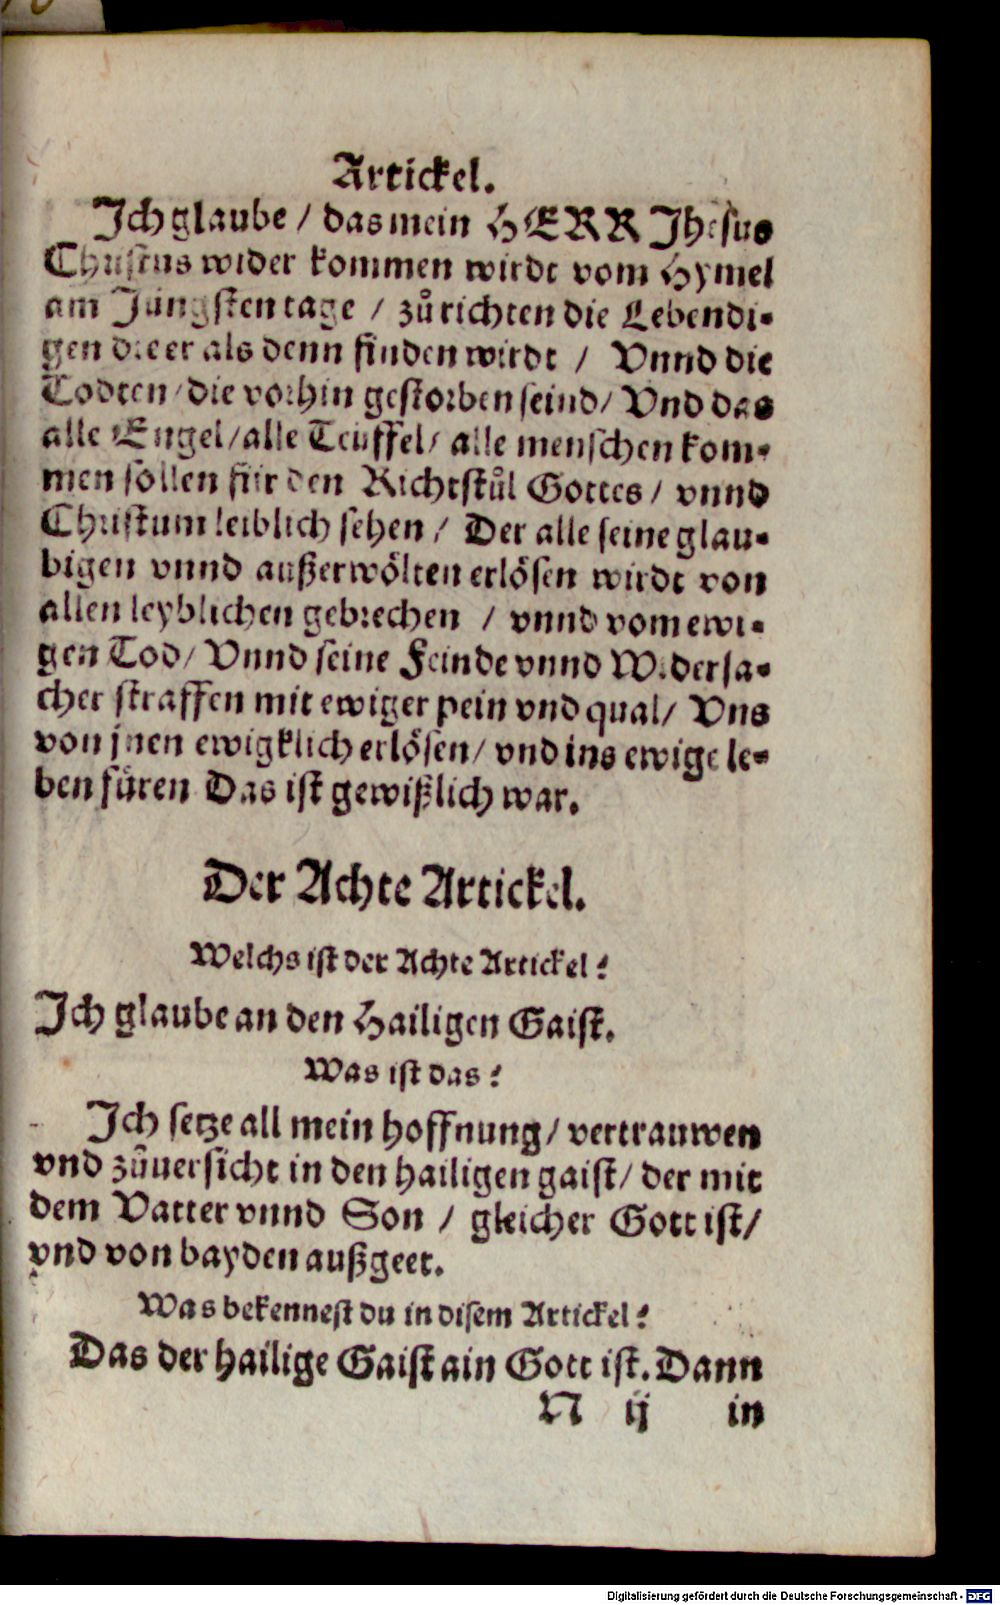 Artickel.
Ich glaube / das mein HERR Jhesus
Christus wider kommen wirdt vom Hymel
am Jüngsten tage / zůrichten die Lebendi-
gen die er als denn finden wirdt / Vnnd die
Todten / die vorhin gestorben seind / Vnd das
alle Engel / alle Teuffel / alle menschen kom-
men söllen für den Richtstůl Gottes / vnnd
Christum leiblich sehen / Der alle seine glau-
bigen vnnd außerwölten erlösen wirdt von
allen leyblichen gebrechen / vnnd vom ewi-
gen Tod / Vnnd seine Feinde vnnd Widersa-
cher straffen mit ewiger pein vnd qual / Vns
von jnen ewigklich erlösen / vnd ins ewige le-
ben füren Das ist gewißlich war.
Der Achte Artickel.
Welchs ist der Achte Artickel?
Ich glaube an den Hailigen Gaist.
Was ist das?
Ich setze all mein hoffnung / vertrauwen
vnd zůuersicht in den hailigen gaist / der mit
dem Vatter vnnd Son / gleicher Gott ist /
vnd von bayden außgeet.
Was bekennest du in disem Artickel?
Das der hailige Gaist ain Gott ist. Dann
N ij in
Digitalisierung gefördert durch die Deutsche Forschungsgemeinschaft - DFG